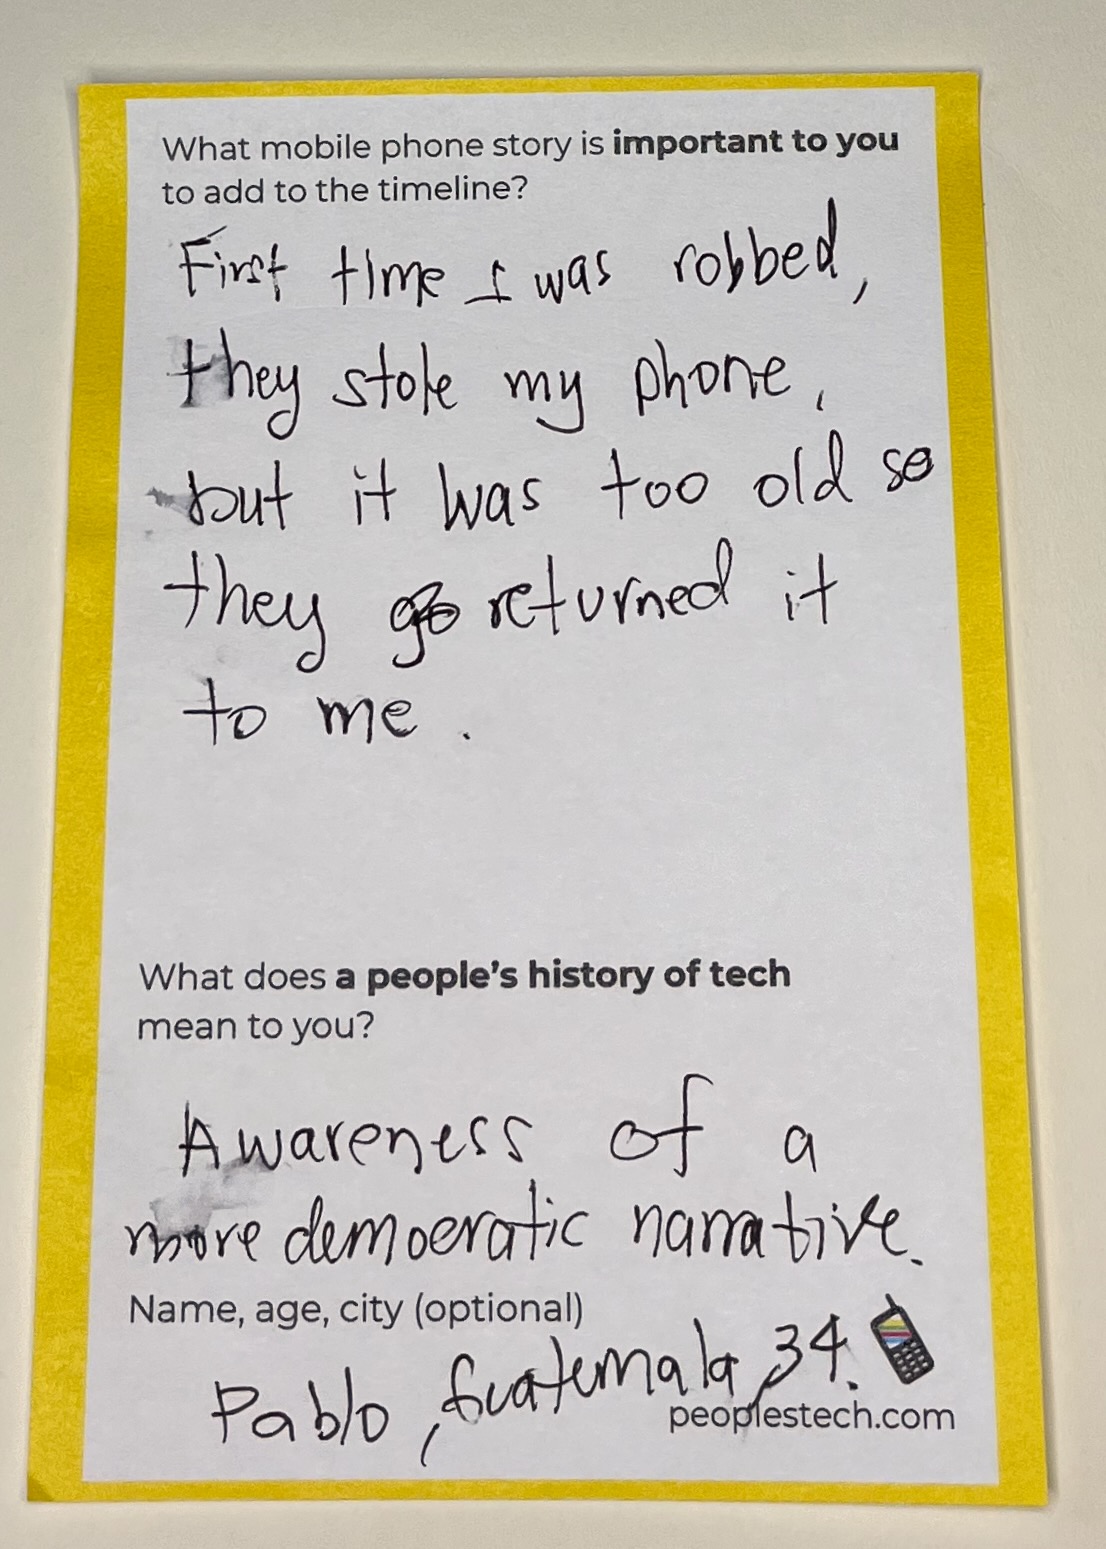 What mobile phone story is important to you
to add to the timeline?
First time I was robbed,
they stole my phone,
but it was too old so
they returned it
to me.
What does a people's history of tech
mean to you?
Awareness of a
more democratic narrative.
Name, age, city (optional)
Pablo, Guatemala, 34.
peoplestech.com